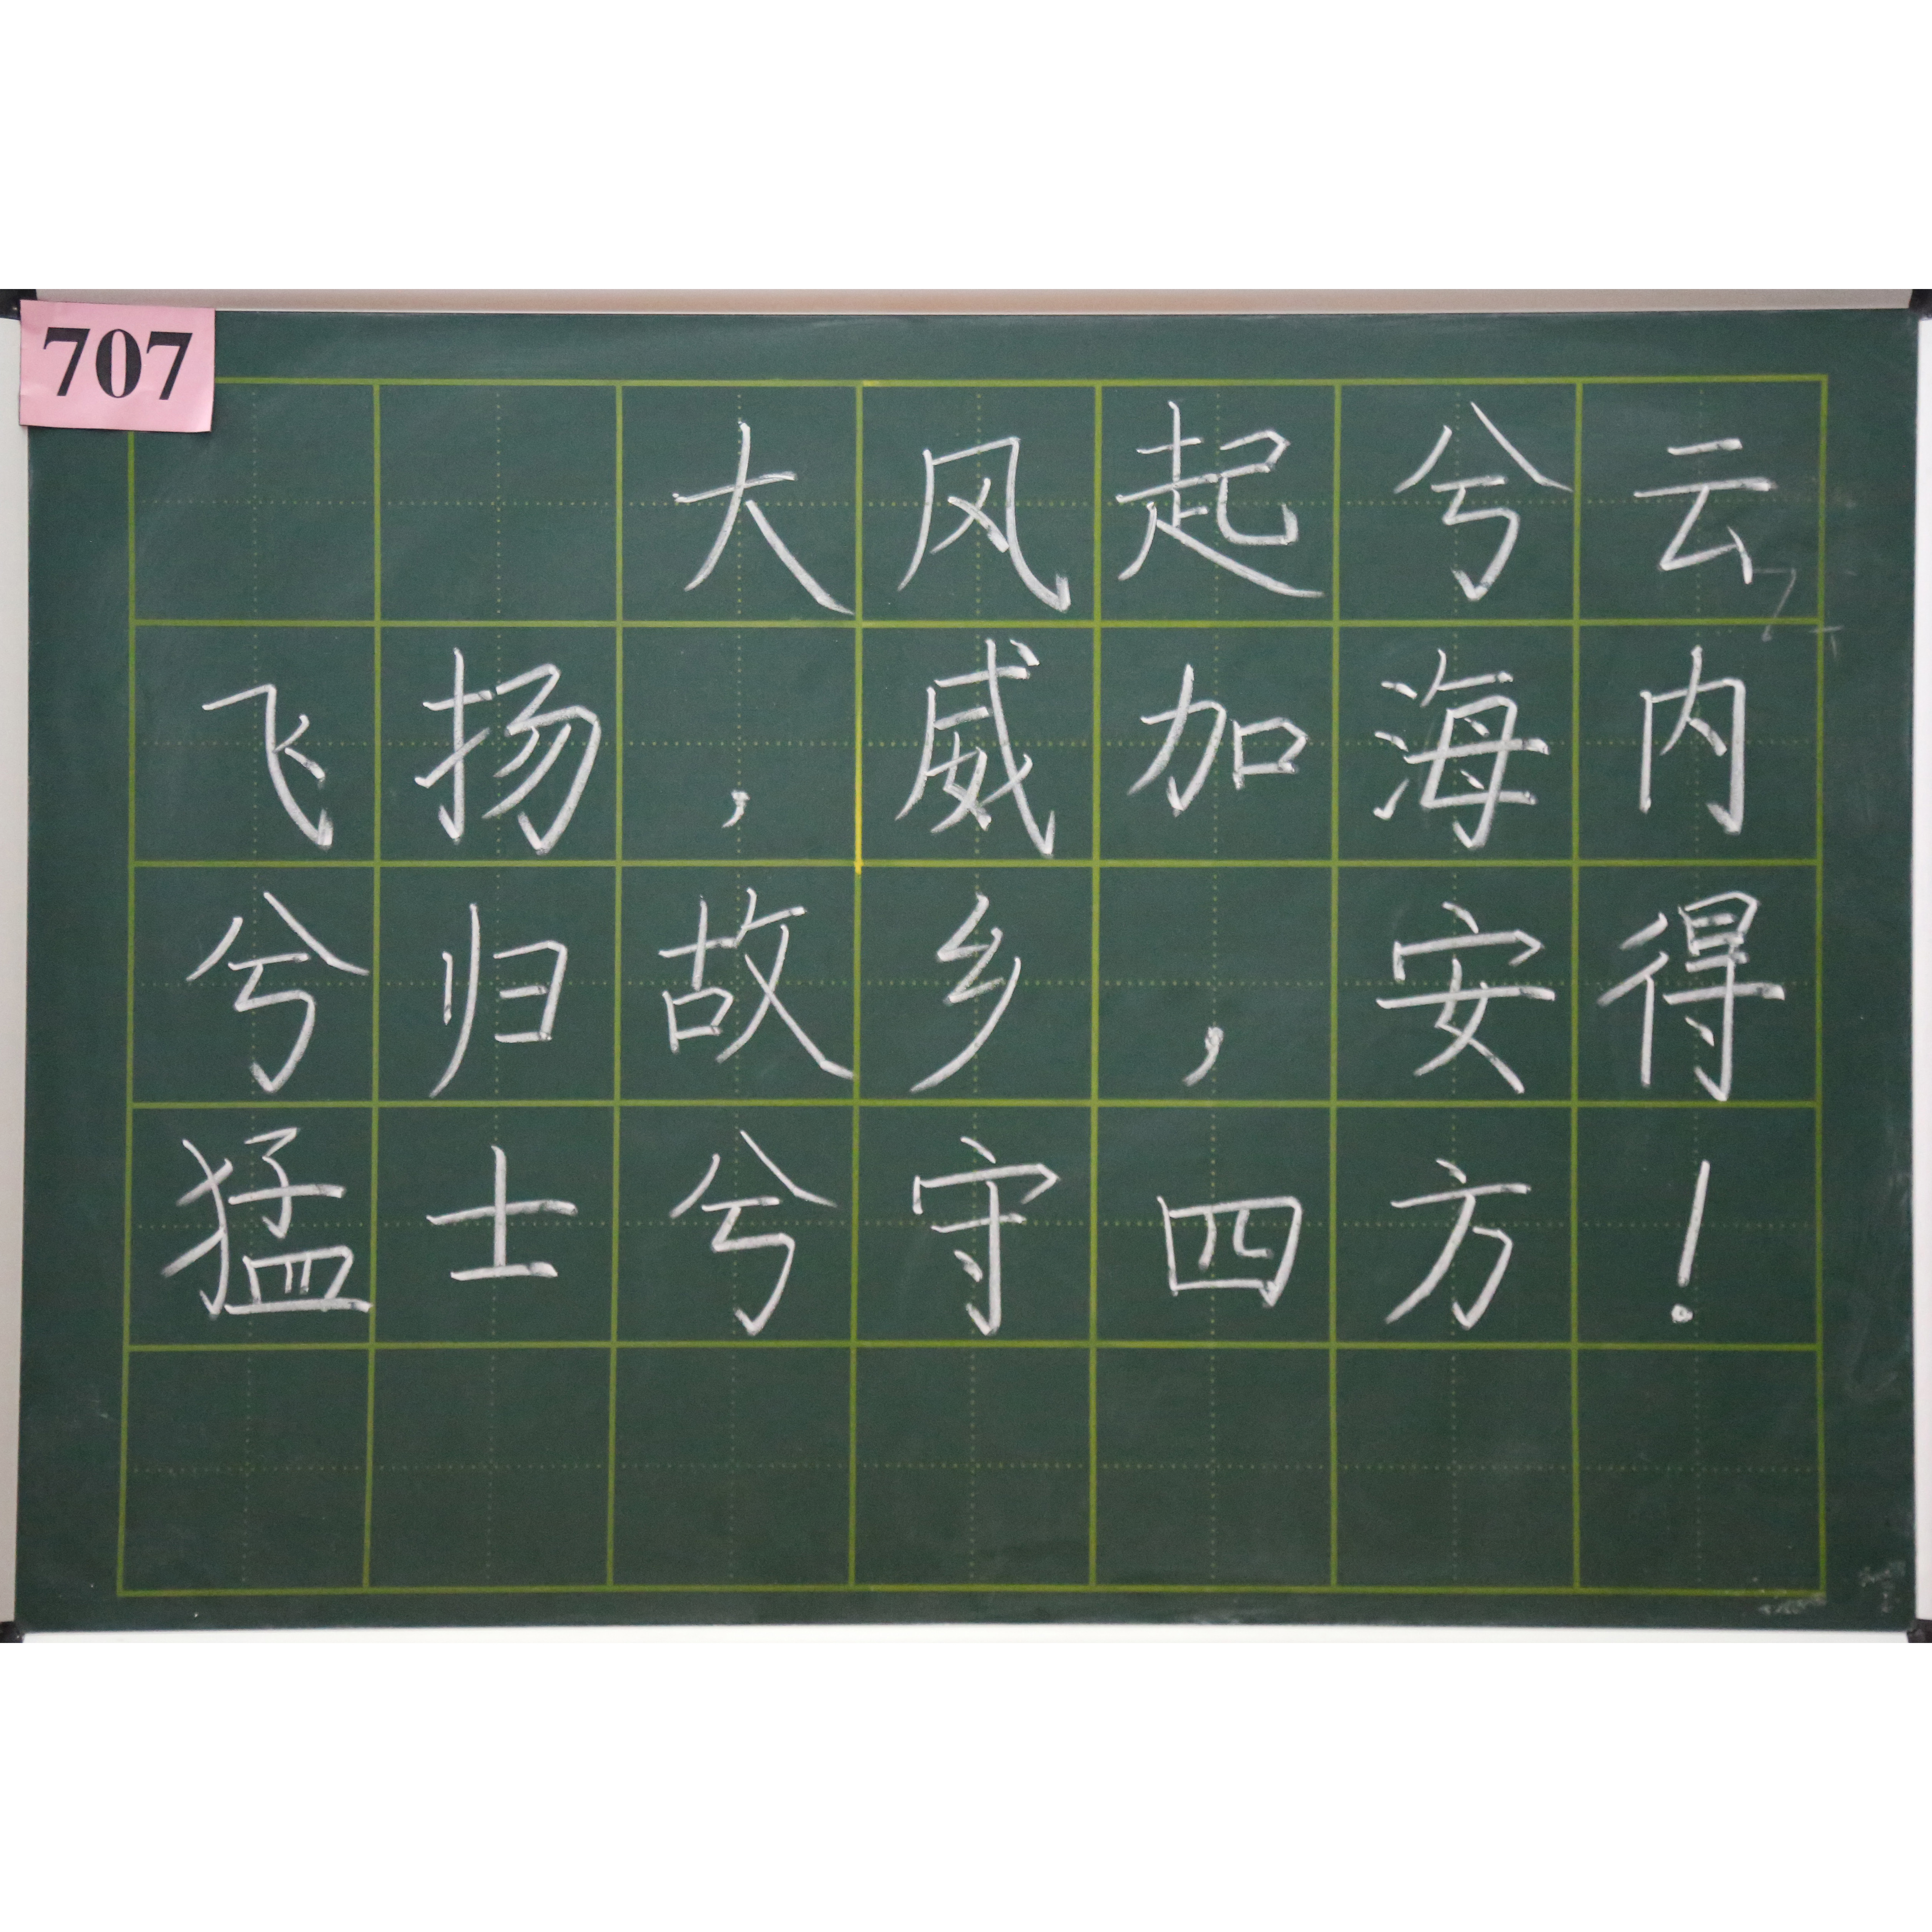 707
大风起兮云
飞扬，威加海内
兮归故乡，安得
猛士兮守四方！